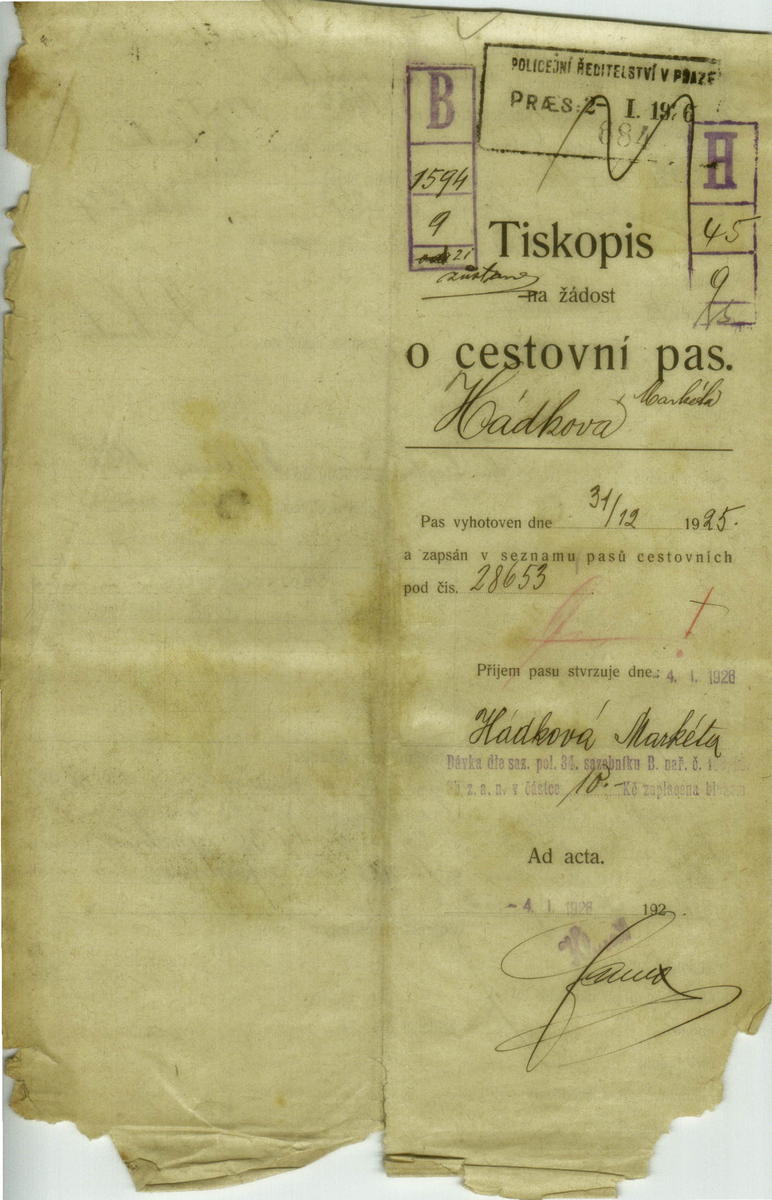 POLICEJNÍ ŘEDITELSTVÍ V PRAZE
PRÆS: 2- I. 1926
884
B
1594
9
H
45
9
Tiskopis
na žádost
o cestovní pas.
Hádková Markéta
Pas vyhotoven dne 31/12 1925.
a zapsán v seznamu pasů cestovních
pod čís. 28653
Příjem pasu stvrzuje dne: 4. I. 1926
Hádková Markéta
Dávka dle saz. pol. 34. sazebníku B. nař. č.
Sb z. a. n. v částce 10.- Kč zaplacena
Ad acta.
- 4. I. 1926 192 .